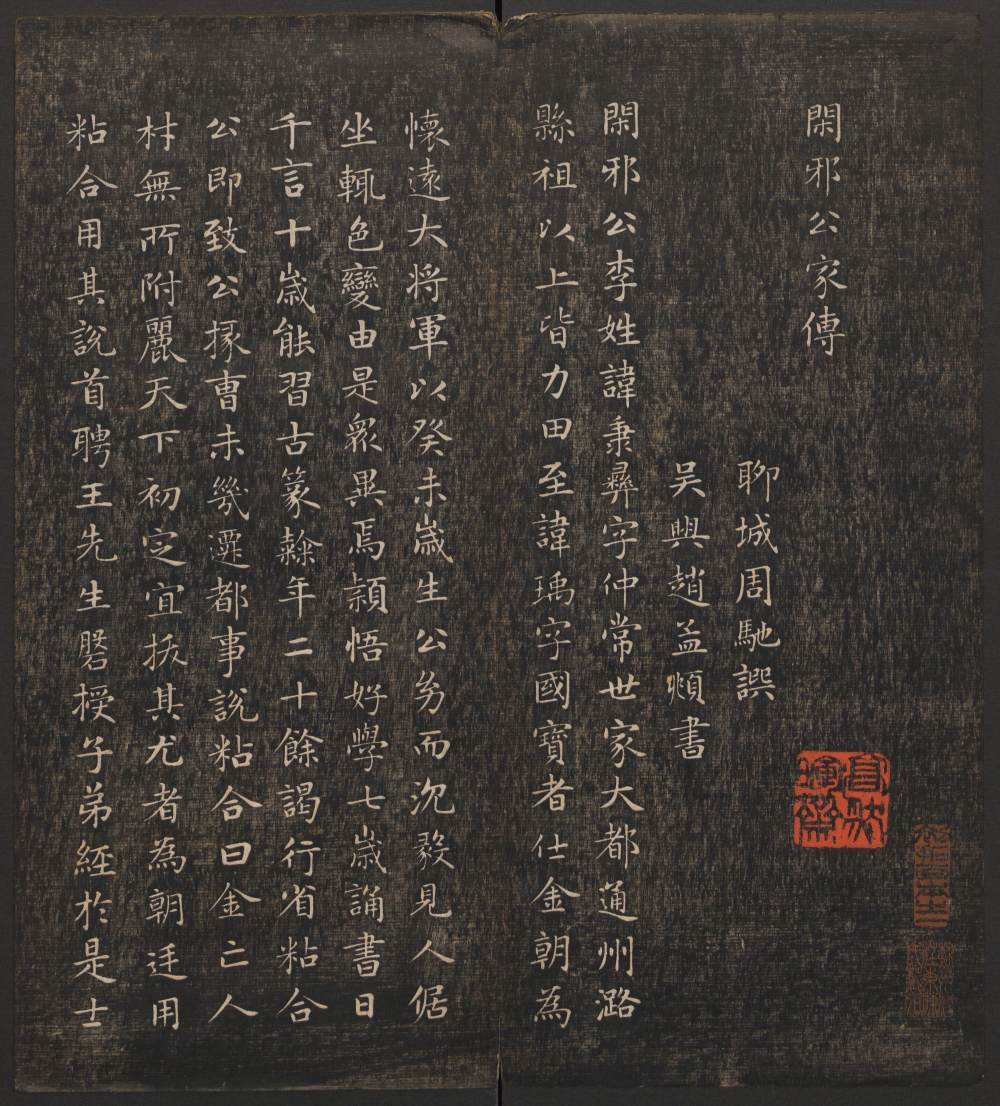 閑邪公家傳
聊城周馳譔
吳興趙孟頫書
閑邪公李姓諱秉彝字仲常世家大都通州潞
縣祖以上皆力田至諱瑀字國寶者仕金朝為
懷遠大將軍以癸未歲生公㓜而沉毅見人倨
坐輒色變由是眾異焉穎悟好學七歲誦書日
千言十歲能習古篆繇年二十餘謁行省粘合
公即致公掾曹未幾遷都事說粘合曰金亡人
材無所附麗天下初定宜拔其尤者為朝廷用
粘合用其說首聘王先生磐授子弟經於是士